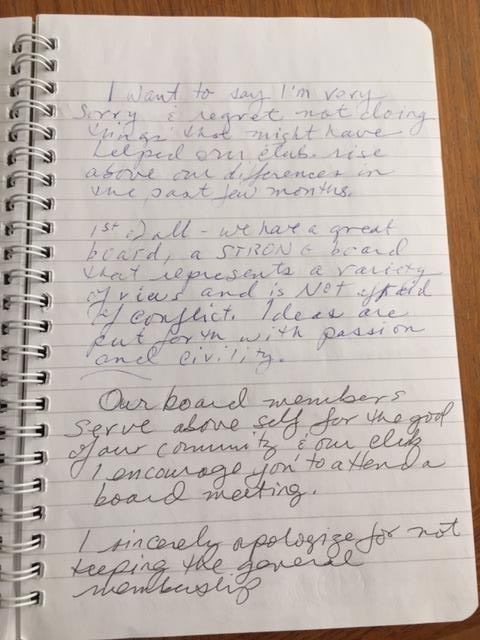 I want to say I'm very
sorry & regret not doing
things that might have
helped our club rise
above our differences in
the past few months.
1st of all - we have a great
board, a STRONG board
that represents a variety
of views and is NOT afraid
of conflict. Ideas are
put forth with passion
and civility.
Our board members
serve above self for the good
of our community & our club
I encourage you to attend a
board meeting.
I sincerely apologize for not
keeping the general
membership